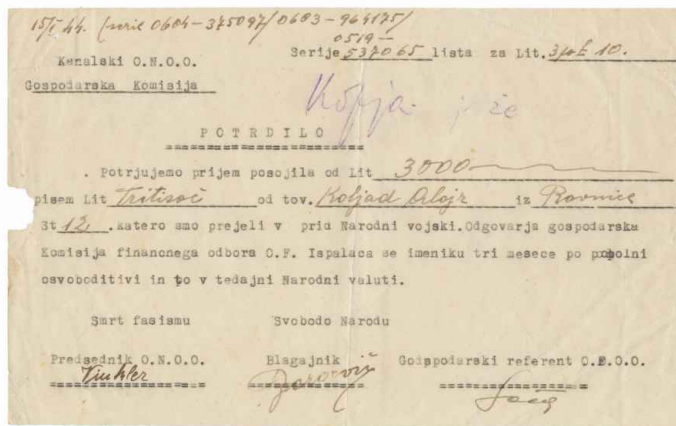 15/I 44. (serie 0604-375097/0603-964175/
0519-
Kanalski O.N.O.O. Serije 537065 lista za Lit. 3 po £ 10.
Gospodarska Komisija
Kopja je že
POTRDILO
. Potrjujemo prijem posojila od Lit 3000
pisem Lit Tritisoč od tov. Alojz iz Ravnice
St 12. katero smo prejeli v prid Narodni vojski.Odgovarja gospodarska
Komisija finanonega odbora O.F. Ispalaca se imeniku tri mesece po popolni
osvoboditivi in to v tedajni Narodni valuti.
Smrt fasismu Svobodo Narodu
Predsednik O.N.O.O. Blagajnik Godspodarski referent O.E.O.O.
Vinkler